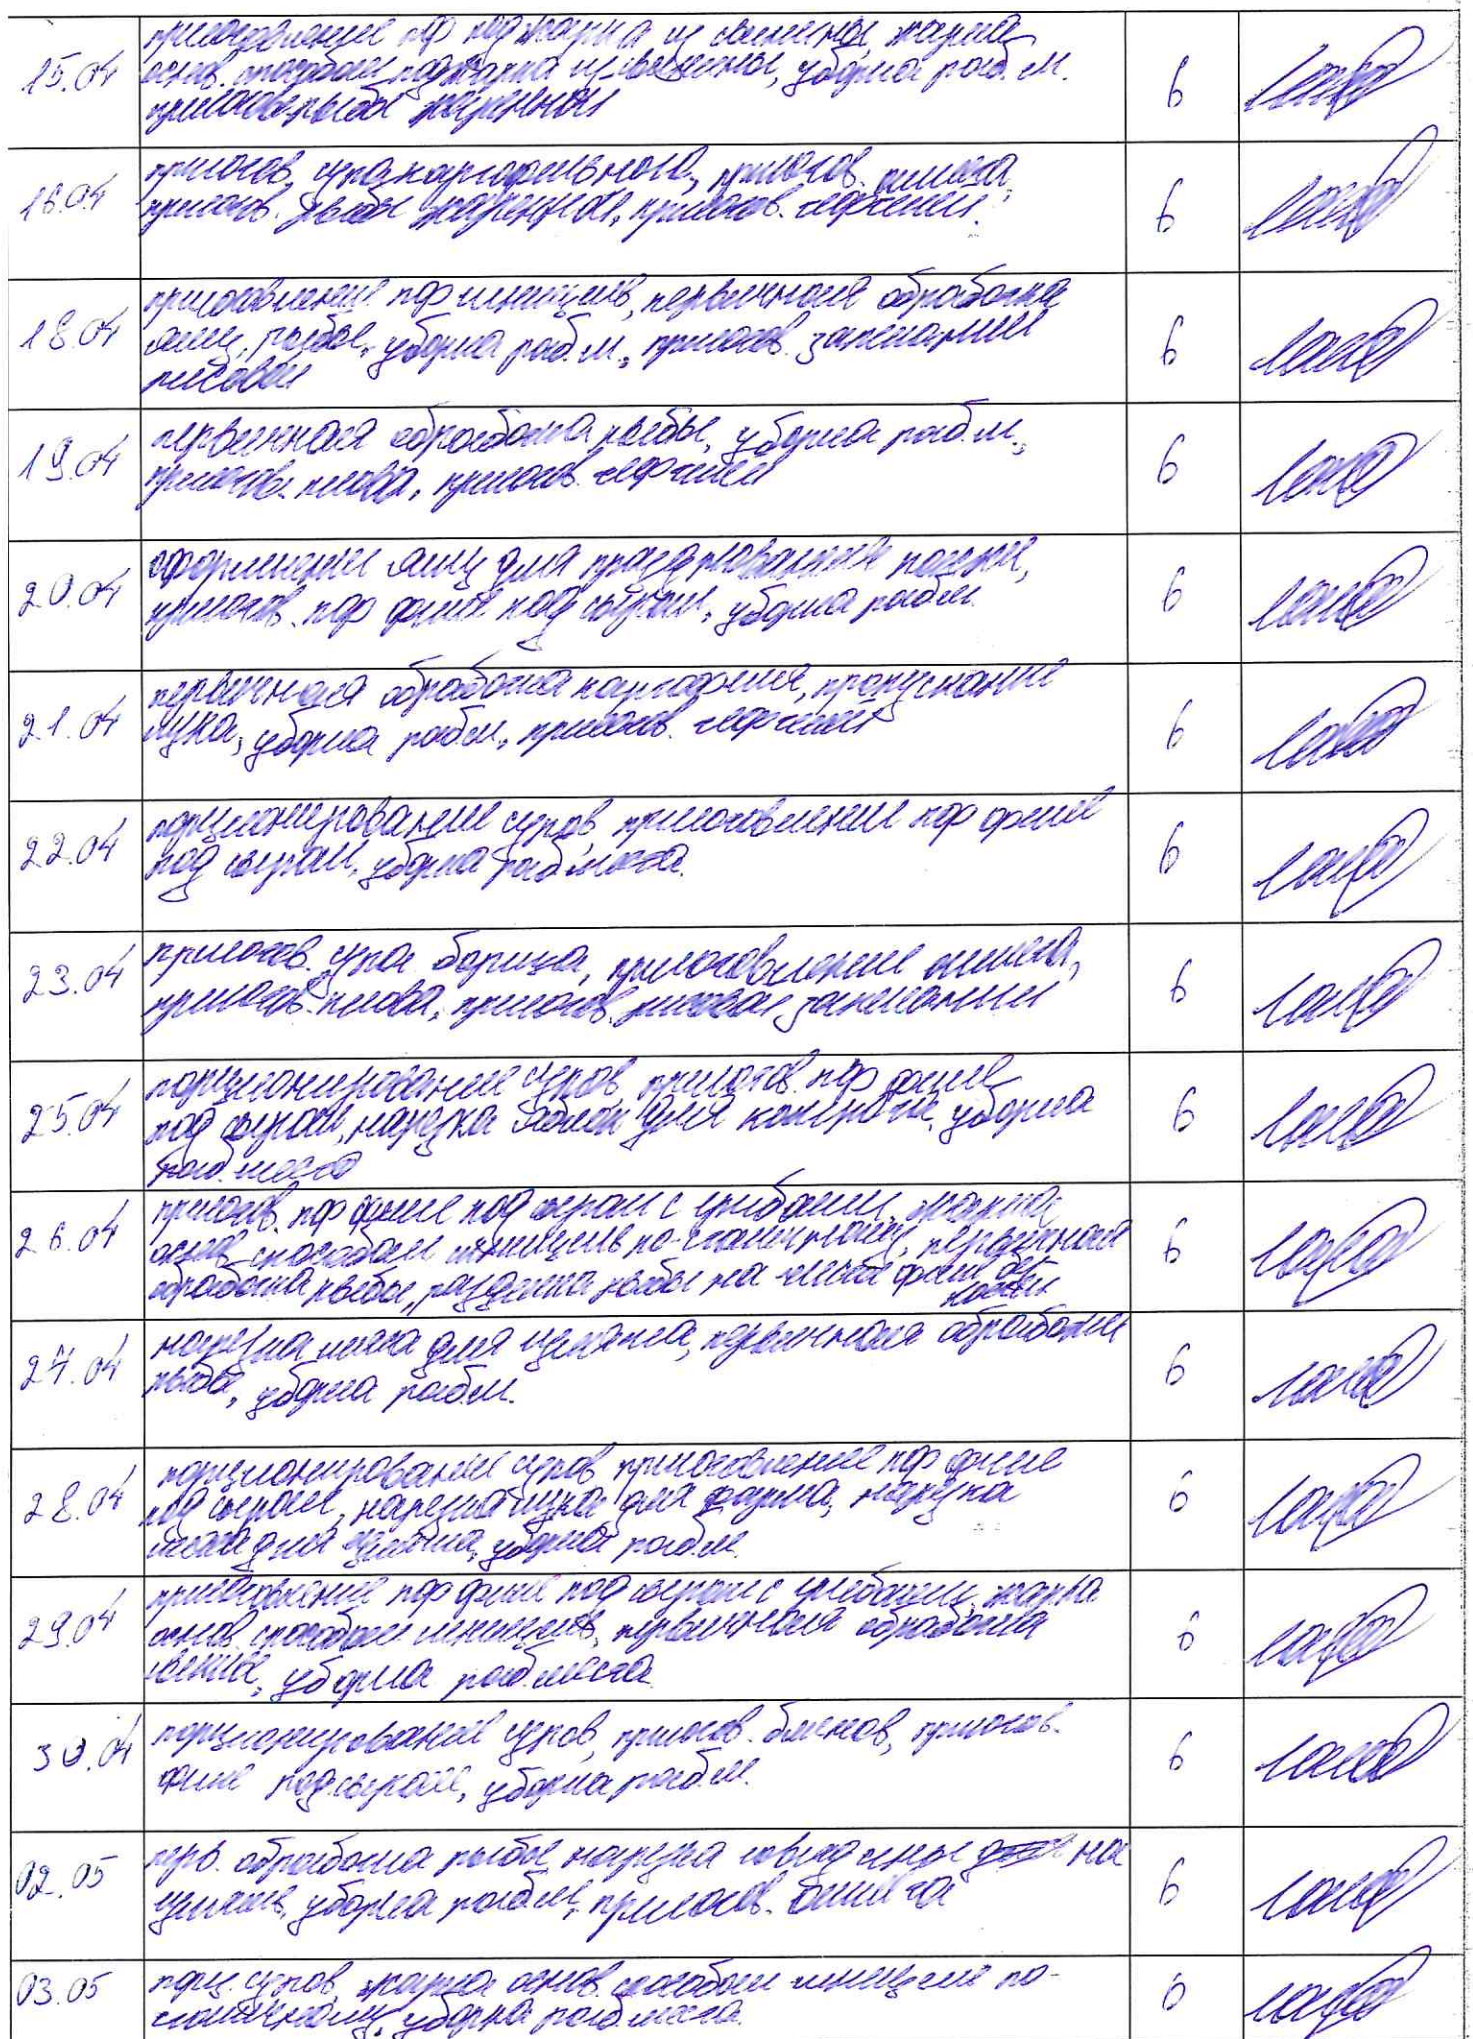 15.04 приготовление пф поджарка из свинины, жарка
основ. способом поджарка из свинины, уборка раб. м.
приготов. рыбы жаренной
6
16.04 приготов. супа картофельного, приготов. омлета
приготов. рыбы жаренной, приготов. тефтелей.
6
18.04 приготовление пф шницель, первичная обработка
яиц, рыбы, уборка раб. м., приготов. запеканки
рисовой
6
19.04 первичная обработка рыбы, уборка раб. м.,
приготов. плова, приготов. тефтелей
6
20.04 оформление яиц для празднования пасхи,
приготов. пф филе под сыром, уборка раб м.
6
21.04 первичная обработка картофеля, пропускание
лука, уборка раб м., приготов. тефтелей
6
22.04 порционирование супов, приготовление пф филе
под сыром, уборка раб места.
6
23.04 приготов. супа борща, приготовление омлета,
приготов. плова, приготов. рисовой запеканки
6
25.04 порционирование супов, приготов. пф филе
под сыром, нарезка яблок для компота, уборка
раб. места
6
26.04 приготов. пф филе под сыром с грибами, жарка
основ. способом шницель по-столичному, первичная
обработка рыбы, разделка рыбы на филе без
костей
6
27.04 нарезка мяса для гуляша, первичная обработка
рыбы, уборка раб м.
6
28.04 порционирование супов, приготовление пф филе
под сыром, нарезка лука для фарша, нарезка
мяса для гуляша, уборка раб м.
6
29.04 приготовление пф филе под сыром с грибами, жарка
основ. способом шницель, первичная обработка
уборка раб. места
6
30.04 порционирование супов, приготов. блинов, приготов.
филе под сыром, уборка раб м.
6
02.05 перв. обработка рыбы, нарезка говядины на
гуляш, уборка раб м, приготов. омлета
6
03.05 порц. супов, жарка основ. способом шницеля по-
столичному, уборка раб места.
6